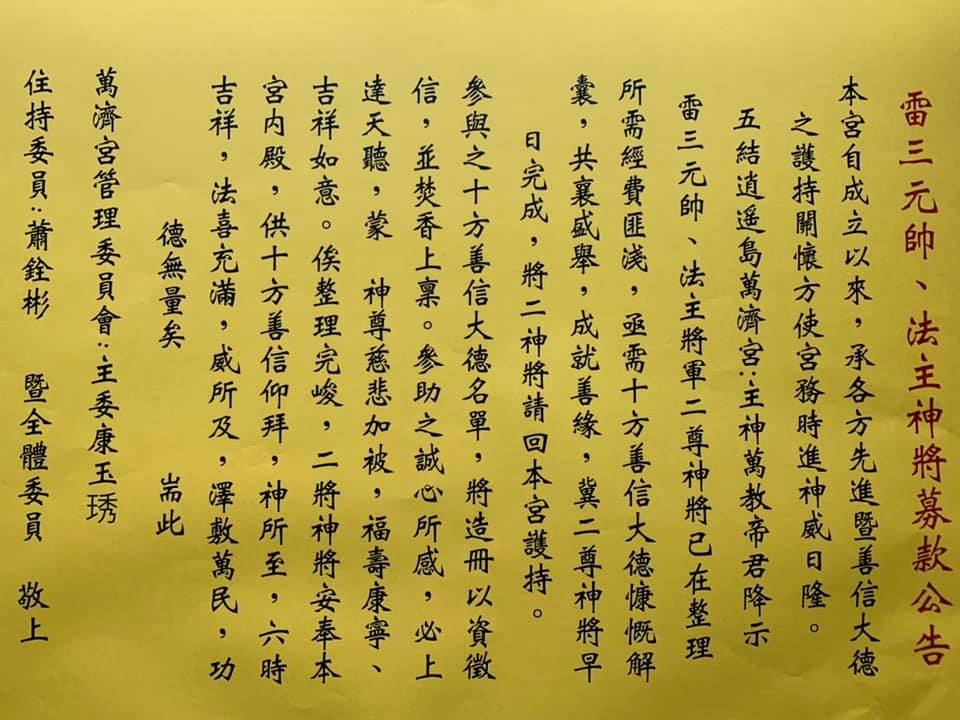 雷三元帥、法主神將募款公告
本宮自成立以來，承各方先進暨善信大德
之護持關懷方使宮務時進神威日隆。
五結逍遥島萬濟宮：主神萬教帝君降示
雷三元帥、法主將軍二尊神將已在整理
所需經費匪淺，亟需十方善信大德慷慨解
囊，共襄盛舉，成就善緣，冀二尊神將早
日完成，將二神將請回本宮護持。
參與之十方善信大德名單，將造冊以資徵
信，並焚香上稟。參助之誠心所感，必上
達天聽，蒙　神尊慈悲加被，福壽康寧、
吉祥如意。俟整理完峻，二將神將安奉本
宮內殿，供十方善信仰拜，神所至，六時
吉祥，法喜充滿，威所及，澤敷萬民，功
德無量矣　　　耑此
萬濟宮管理委員會：主委康玉琇
住持委員：蕭銓彬　暨全體委員　敬上